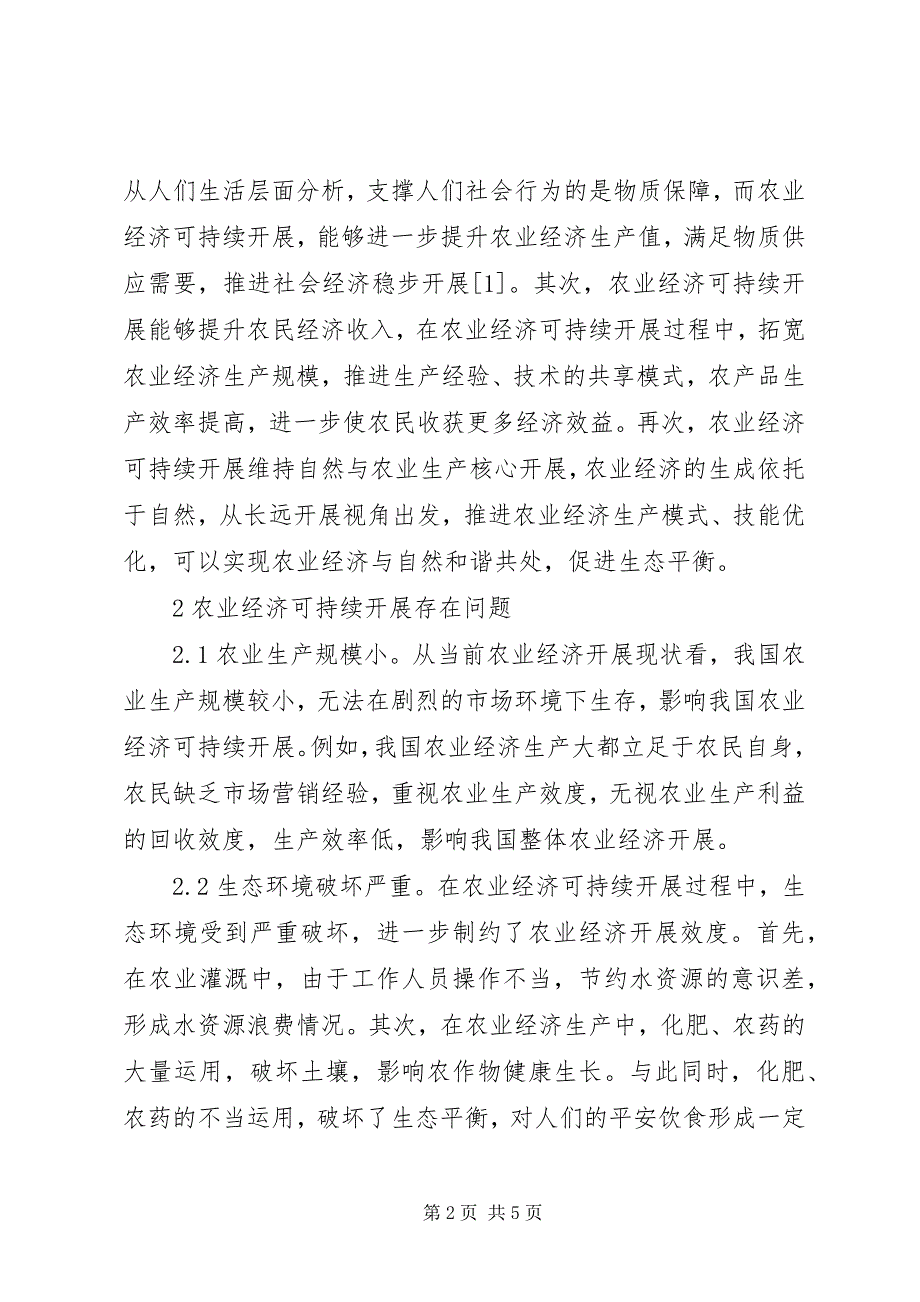 从人们生活层面分析，支撑人们社会行为的是物质保障，而农业
经济可持续开展，能够进一步提升农业经济生产值，满足物质供
应需要，推进社会经济稳步开展[1]。其次，农业经济可持续开
展能够提升农民经济收入，在农业经济可持续开展过程中，拓宽
农业经济生产规模，推进生产经验、技术的共享模式，农产品生
产效率提高，进一步使农民收获更多经济效益。再次，农业经济
可持续开展维持自然与农业生产核心开展，农业经济的生成依托
于自然，从长远开展视角出发，推进农业经济生产模式、技能优
化，可以实现农业经济与自然和谐共处，促进生态平衡。
2 农业经济可持续开展存在问题
2.1 农业生产规模小。从当前农业经济开展现状看，我国农
业生产规模较小，无法在剧烈的市场环境下生存，影响我国农业
经济可持续开展。例如，我国农业经济生产大都立足于农民自身，
农民缺乏市场营销经验，重视农业生产效度，无视农业生产利益
的回收效度，生产效率低，影响我国整体农业经济开展。
2.2 生态环境破坏严重。在农业经济可持续开展过程中，生
态环境受到严重破坏，进一步制约了农业经济开展效度。首先，
在农业灌溉中，由于工作人员操作不当，节约水资源的意识差，
形成水资源浪费情况。其次，在农业经济生产中，化肥、农药的
大量运用，破坏土壤，影响农作物健康生长。与此同时，化肥、
农药的不当运用，破坏了生态平衡，对人们的平安饮食形成一定
第 2 页 共 5 页